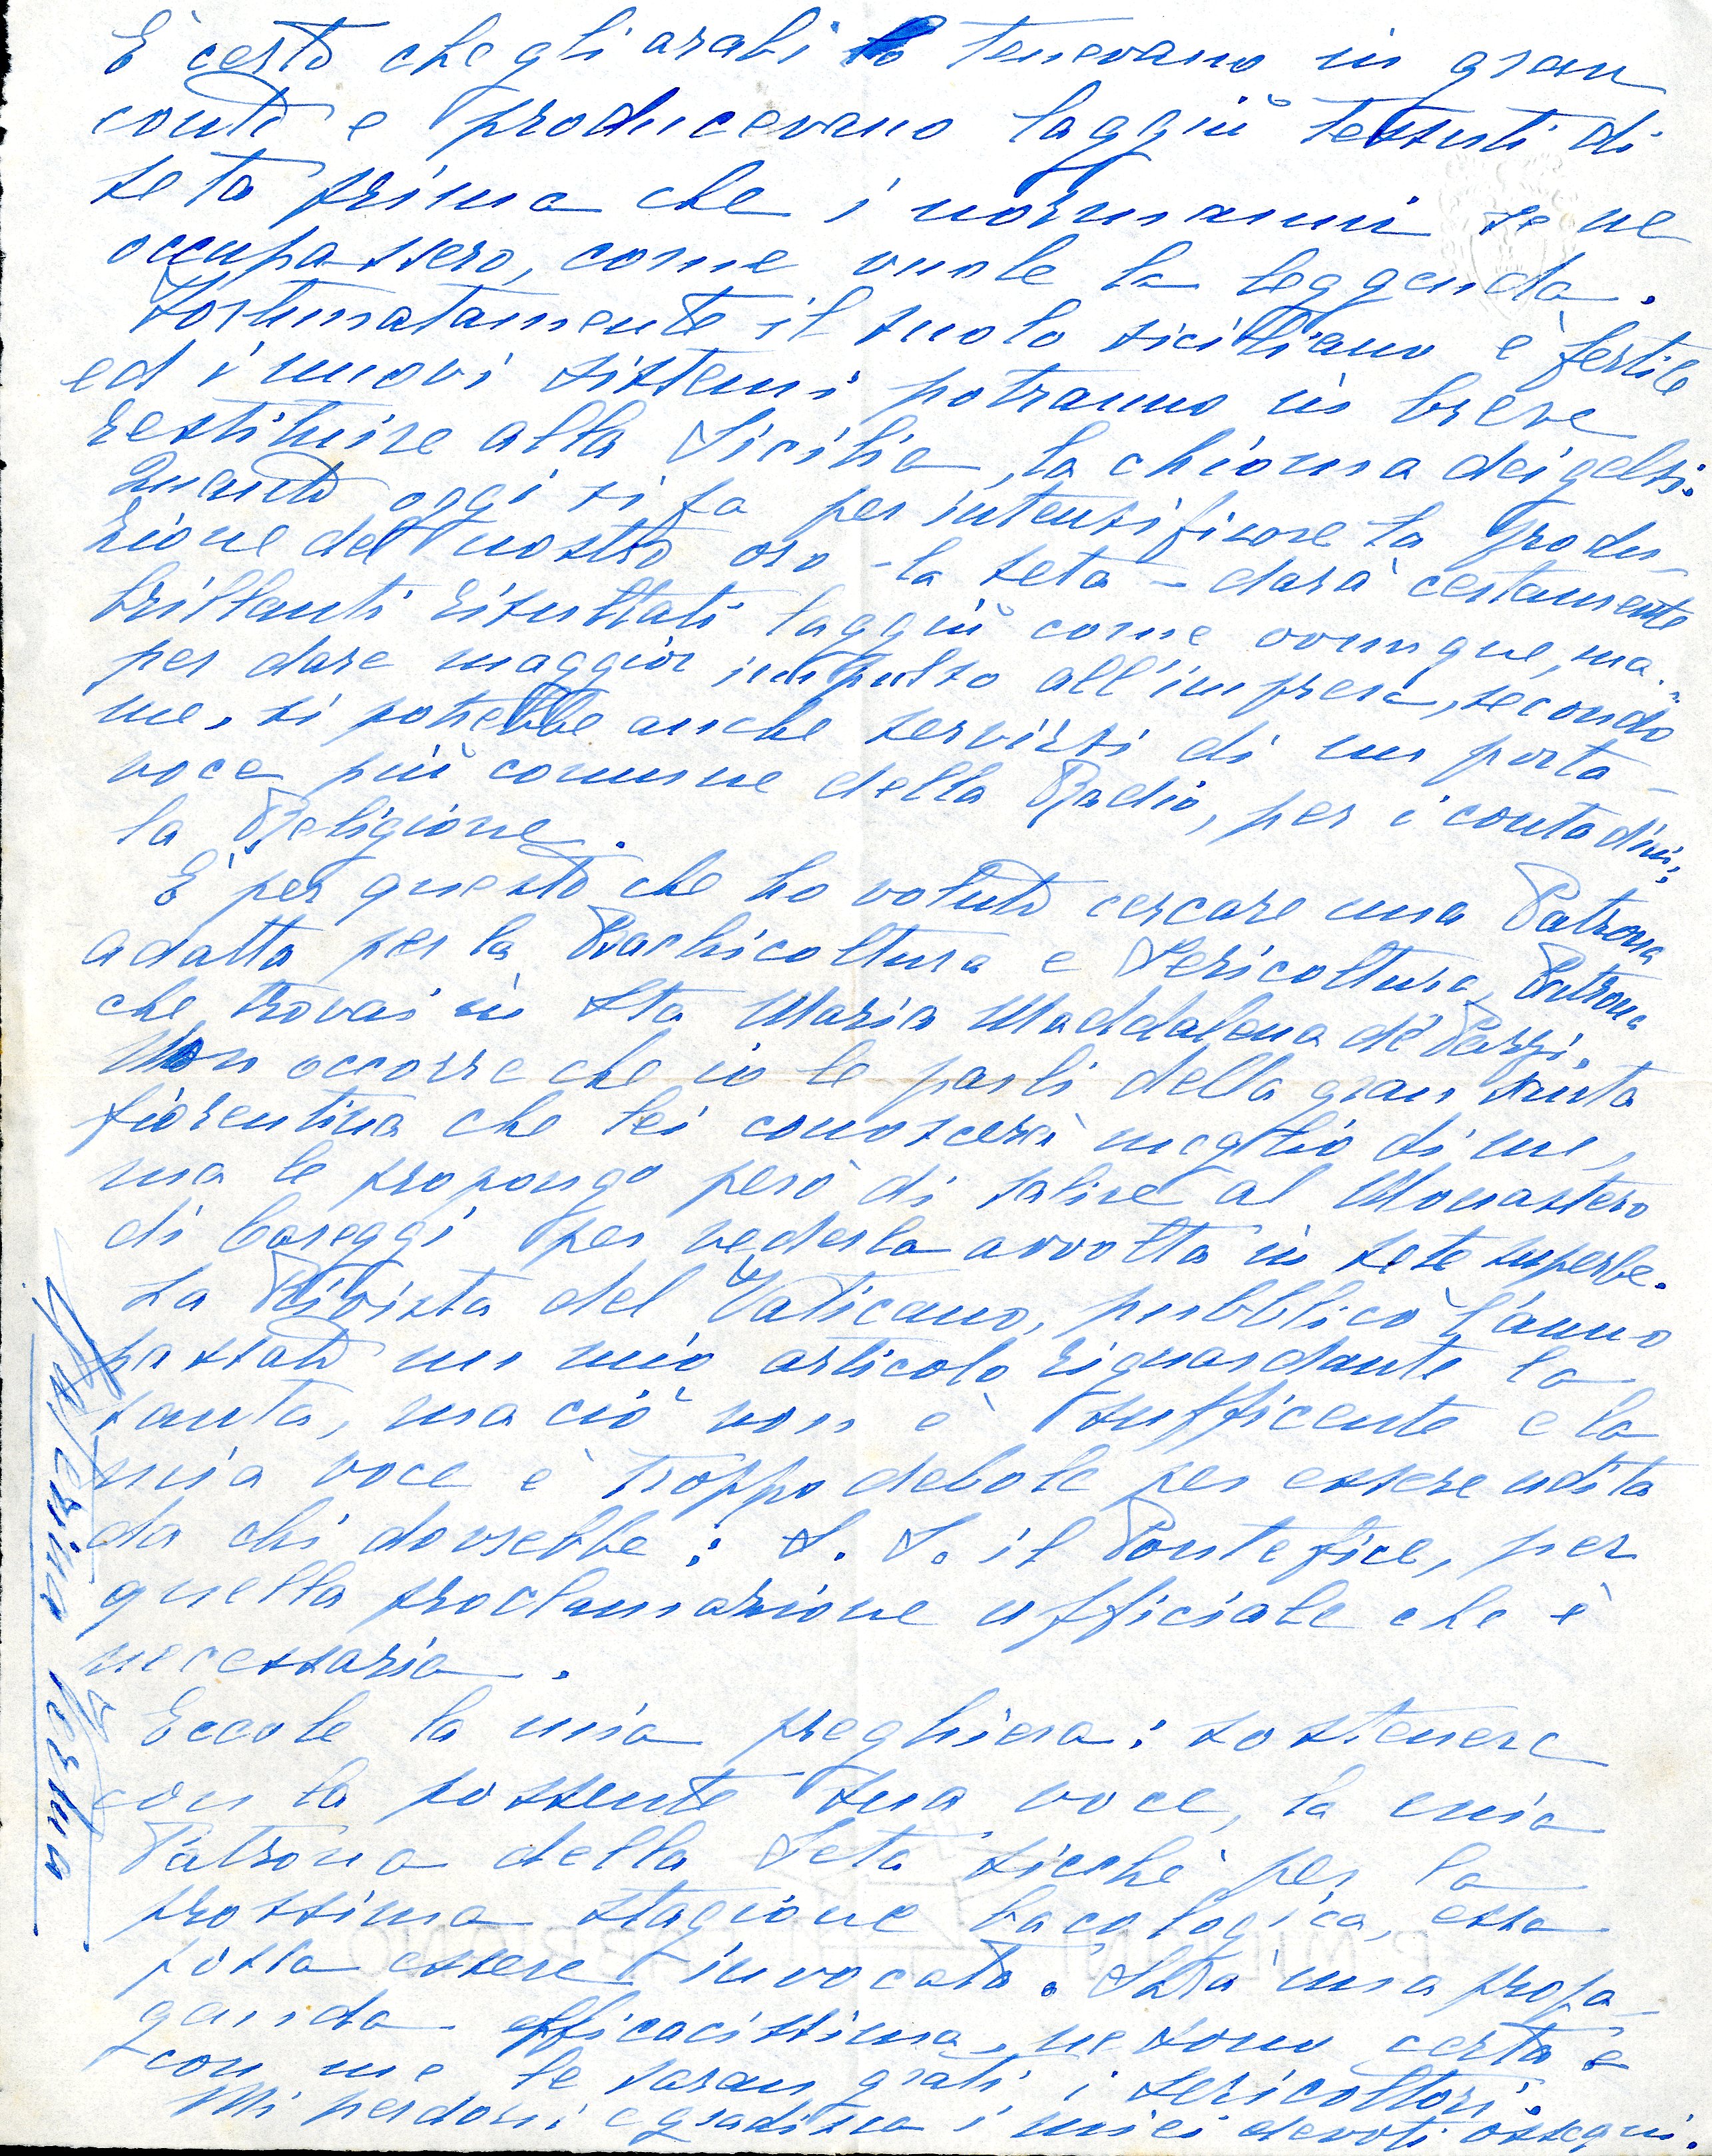 È certo che gli arabi lo tenevano in gran
conto e producevano laggiù tessuti di
seta prima che i normanni se ne
occupassero, come vuole la leggenda.
Fortunatamente il suolo siciliano è fertile
ed i nuovi sistemi potranno in breve
restituire alla Sicilia, la chioma dei gelsi.
Quanto oggi si fa per intensificare la produ-
zione del nostro oro - la seta - darà certamente
brillanti risultati laggiù come ovunque, ma
per dare maggior impulso all'impresa, secondo
me, si potrebbe anche servirsi di un porta-
voce più comune della Radio, per i contadini:
la Religione.
È per questo che ho voluto cercare una Patrona
adatta per la Bachicoltura e Sericoltura, Patrona
che trovai in Sta Maria Maddalena de' Pazzi.
Non occorre che io le parli della gran santa
fiorentina che lei conoscerà meglio di me,
ma le propongo però di salire al Monastero
di Careggi per vederla avvolta in sete superbe.
La Rivista del Vaticano, pubblicò l'anno
passato un mio articolo riguardante la
santa, ma ciò non è sufficente e la
mia voce è troppo debole per essere udita
da chi dovrebbe: S. S. il Pontefice, per
quella proclamazione ufficiale che è
necessaria.
Eccole la mia preghiera: sostenere
con la possente sua voce, la mia
Patrona della Seta sicchè per la
prossima stagione bacologica, essa
possa essere invocata. Sarà una propa-
ganda efficacissima, ne sono certa e
con me le saran grati i sericoltori.
Mi perdoni e gradisca i miei devoti ossequi.
P. MILIANI FABRIANO